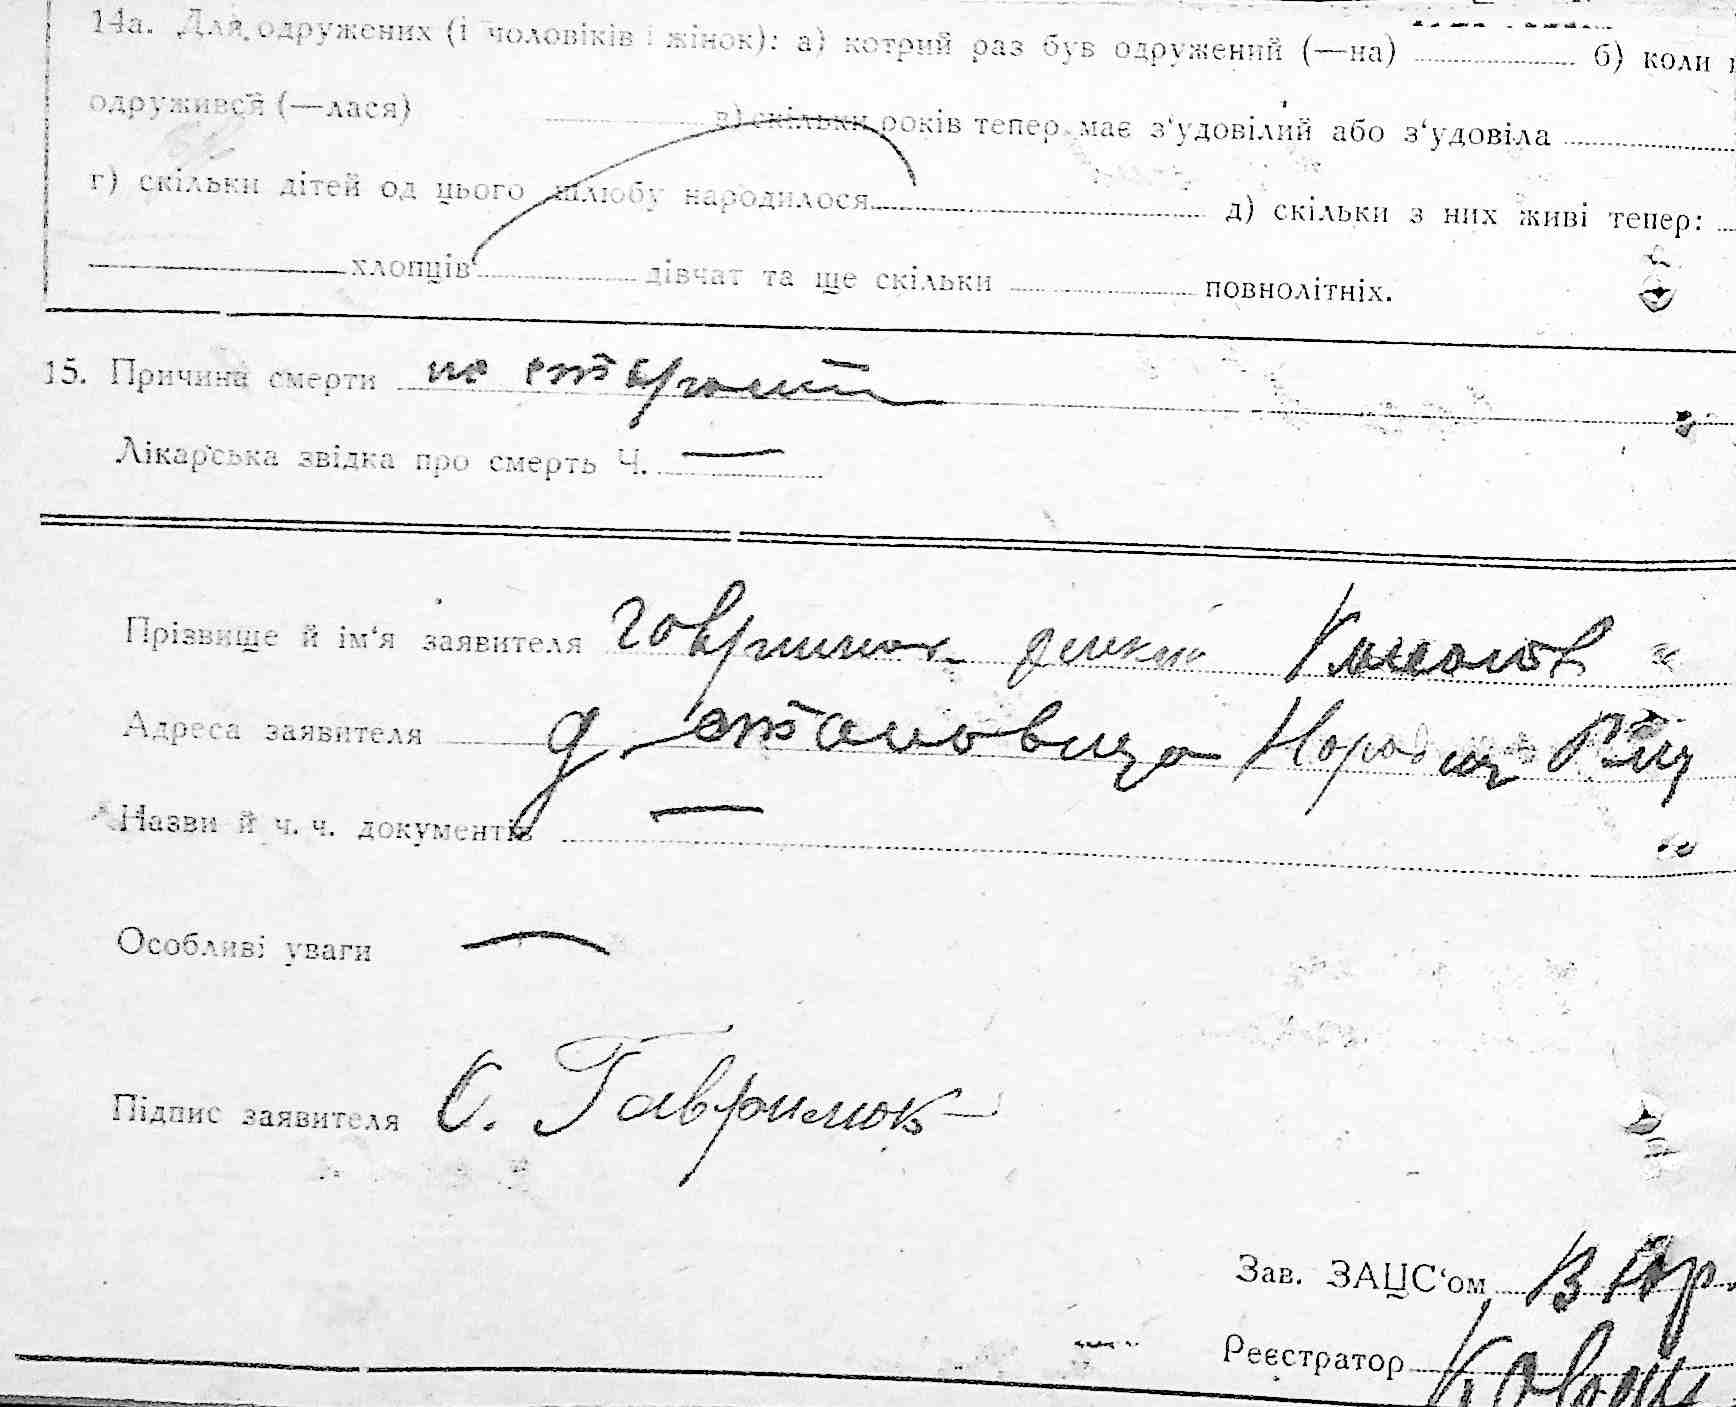 14а. Для одружених (і чоловіків і жінок): а) котрий раз був одружений (—на) б) коли
одружився (—лася) в) скільки років тепер має з‘удовілий або з‘удовіла
г) скільки дітей од цього шлюбу народилося д) скільки з них живі тепер:
хлопців дівчат та ще скільки повнолітніх.
15. Причина смерти по старости
Лікарська звідка про смерть Ч. —
Прізвище й ім‘я заявителя Гаврилюк
Адреса заявителя Народиц
Назви й ч. ч. документів —
Особливі уваги —
Підпис заявителя С. Гаврилюк
Зав. ЗАЦС‘ом
Реєстратор